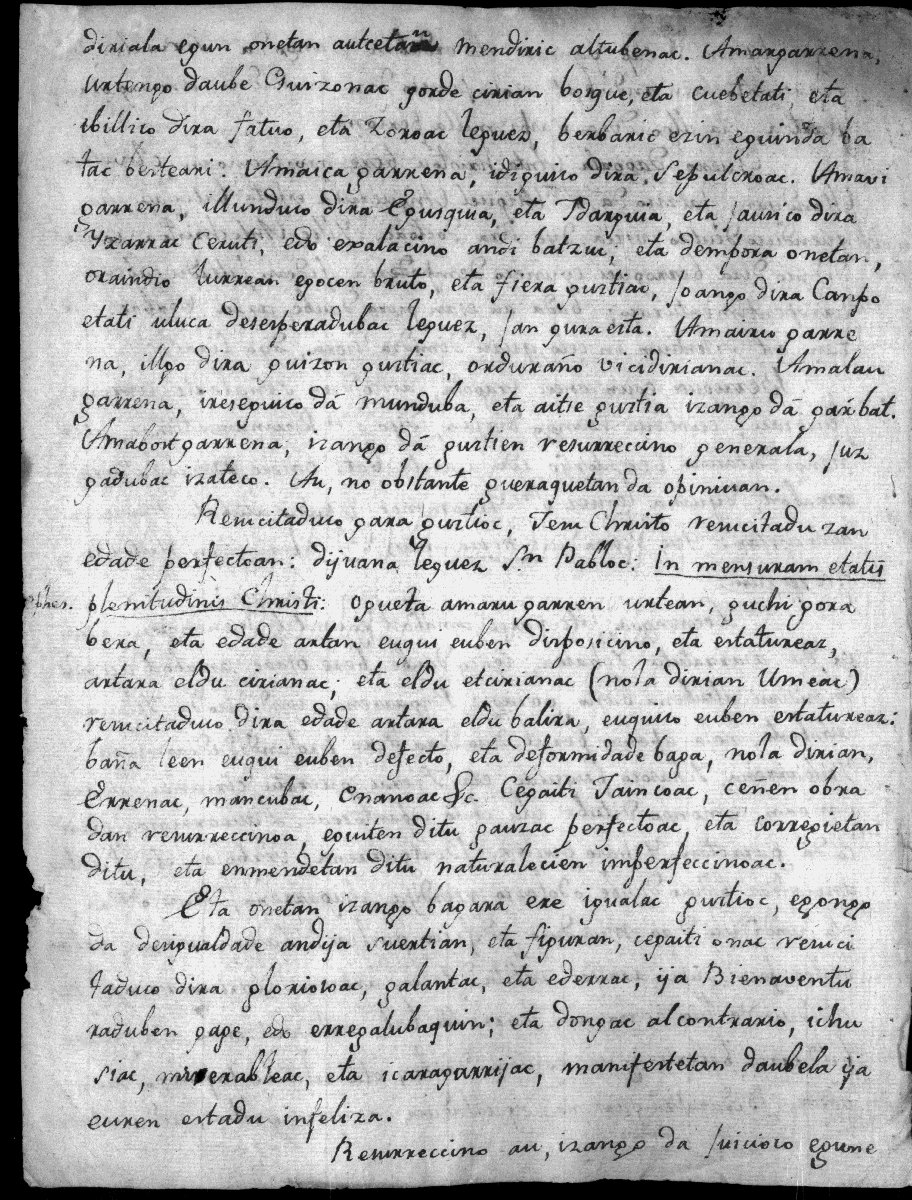 diriala egun onetan autcetan mendiric altubenac. Amargarrena,
Urtengo daube Guizonac gorde cirian bosque, eta cuebetati, eta
ibillico dira fatuo, eta Zoroac leguez, berbaric ezin eguinda ba
tac besteari. Amaica garrena, idiguico dira Sepulcroac. Amavi
garrena, illunduco dira Egusquia, eta Idarguia, eta Jausico dira
Yzarrac Ceruti, edo exalacino andi batzui, eta dempora onetan,
oraindio lurrean egocen bruto, eta fiera gustiac, joango dira Canpo
etati uluca desesperadubac leguez, jan gura esta. Amairu garre
na, illgo dira guizon gustiac, ordurañ vicidirianac. Amalau
garrena, ireseguico dá munduba, eta aitie gustia izango dá gar bat.
Amabost garrena, izango dá gustien resurreccino generala, juz
gadubac izateco. Au, no obstante gueraquetan da opinivan.
Resucitaduco gara gustioc, Jesu Christo resucitadu zan
edade perfectoan: dijuana leguez Sn. Pabloc: In mensuram etatis
ephes. plenitudinis Christi: ogueta amaru garren urtean, guchi gora
bera, eta edade artan euqui euben disposicino, eta estatureaz,
artara eldu cirianac; eta eldu etcirianac (nola dirian Umeac)
resucitaduco dira edade artara eldu balira, euquico euben estatureaz:
baña leen euqui euben defecto, eta deformidade baga, nola dirian,
Errenac, mancubac, Enanoac &c. Cegaiti Jaincoac, ceñen obra
dan resurreccinoa, eguiten ditu gauzac perfectoac, eta corregietan
ditu, eta enmendetan ditu naturalecien imperfeccinoac.
Eta onetan izango bagara ere igualac gustioc, egongo
da desigualdade andija suertian, eta figuran, cegaiti onac resuci
taduco dira gloriosoac, galantac, eta ederrac, ija Bienaventu
raduben gage, edo erregalubaquin; eta dongac alcontrario, ichu
siac, miserableac, eta icaragarrijac, manifestetan daubela ija
euren estadu infeliza.
Resurreccino au, izango da juicioco egune